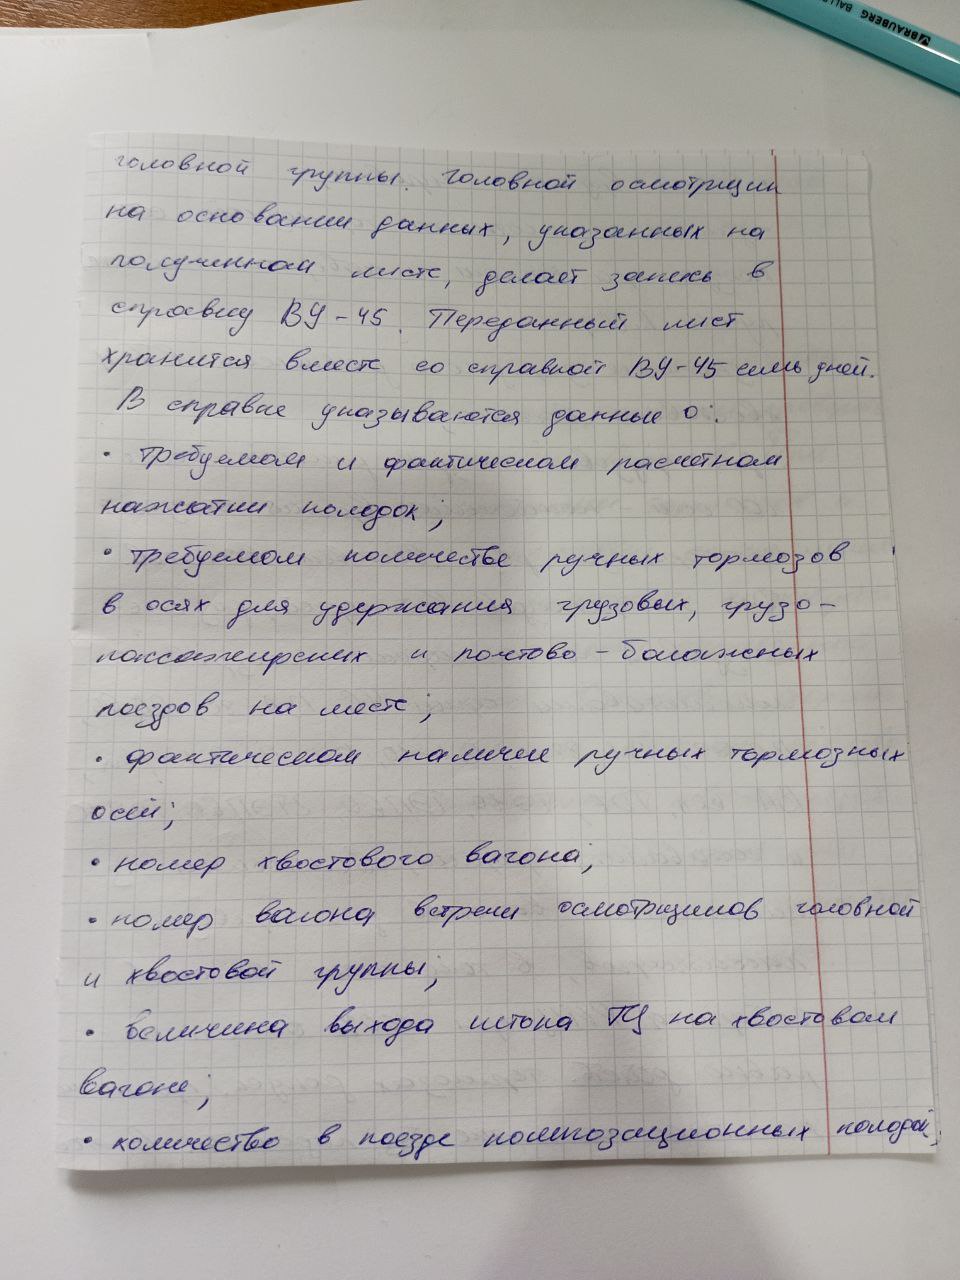 BRAUBERG BALL
головной группы. Головной осмотрщик
на основании данных, указанных на
полученном листе, делает запись в
справку ВУ-45. Переданный лист
хранится вместе со справкой ВУ-45 семь дней.
В справке указываются данные о:
• требуемом и фактическом расчетном
нажатии колодок;
• требуемом количестве ручных тормозов
в осях для удержания грузовых, грузо-
пассажирских и почтово-багажных
поездов на месте;
• фактическом наличии ручных тормозных
осей;
• номер хвостового вагона;
• номер вагона встречи осмотрщиков головной
и хвостовой группы;
• величина выхода штока ТЦ на хвостовом
вагоне;
• количество в поезде композационных колодок;